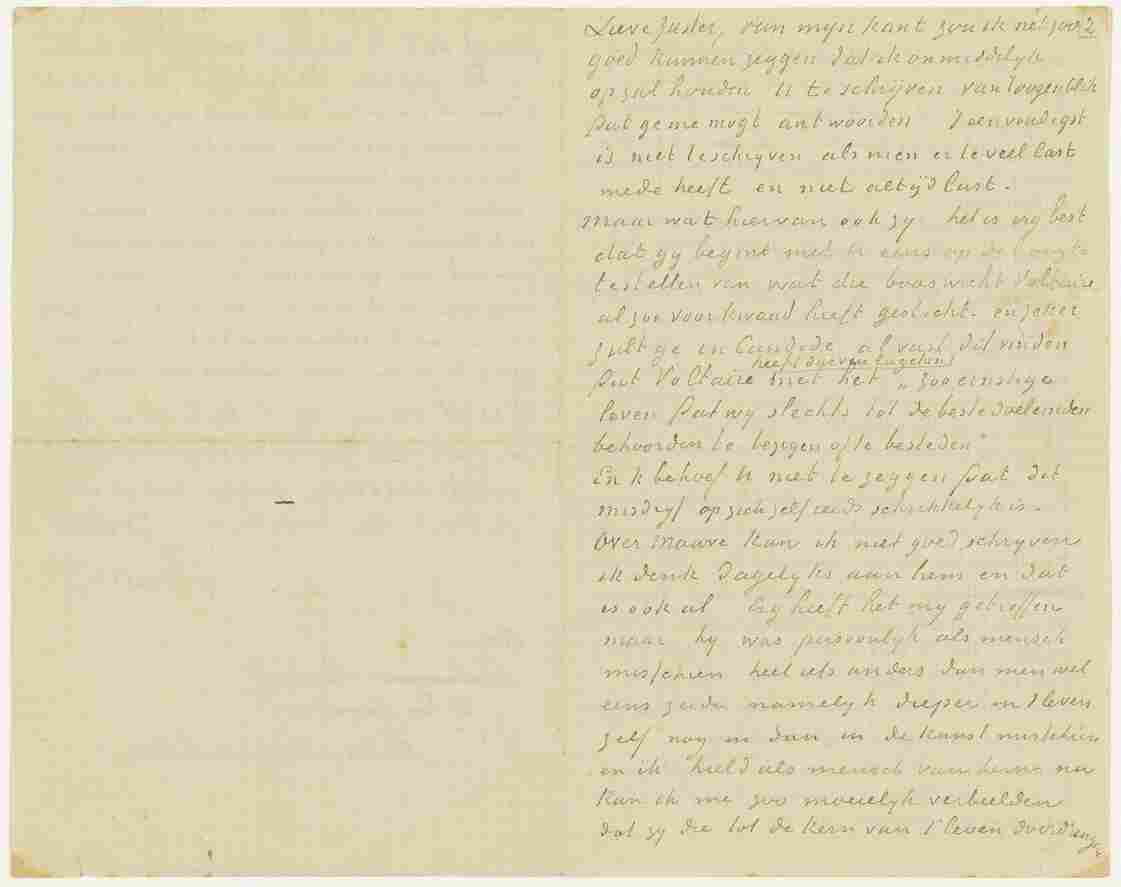 Lieve Zuster, van mijn kant zou ik net zoo 2
goed kunnen zeggen dat ik onmiddelyk
op zal houden U te schrijven van 't oogenblik
dat ge me mogt antwoorden 't eenvoudigst
is niet te schrijven als men er te veel last
mede heeft en niet altijd lust.
Maar wat hiervan ook zy het is erg best
dat gy begint met U eens op de hoogte
te stellen van wat die booswicht Voltaire
al zoo voor kwaad heeft gesticht. en zeker
zult ge in Candide al vast dit vinden
heeft durven lagchen
dat Voltaire met het „zoo ernstige
leven dat wy slechts tot de beste doeleinden
behoorden te bezigen of te besteden”
En k behoef U niet te zeggen dat dit
misdryf op zich zelf reeds schrikkelyk is.
Over Mauve kan ik niet goed schryven
ik denk dagelyks aan hem en dat
is ook al Erg heeft het my getroffen
maar hy was persoonlyk als mensch
misschien heel iets anders dan men wel
eens zeide namelyk dieper in 't leven
zelf nog in dan in de kunst misschien
en ik hield als mensch van hem nu
kan ik me zoo moeielyk verbeelden
dat zy die tot de kern van 't leven doordringen